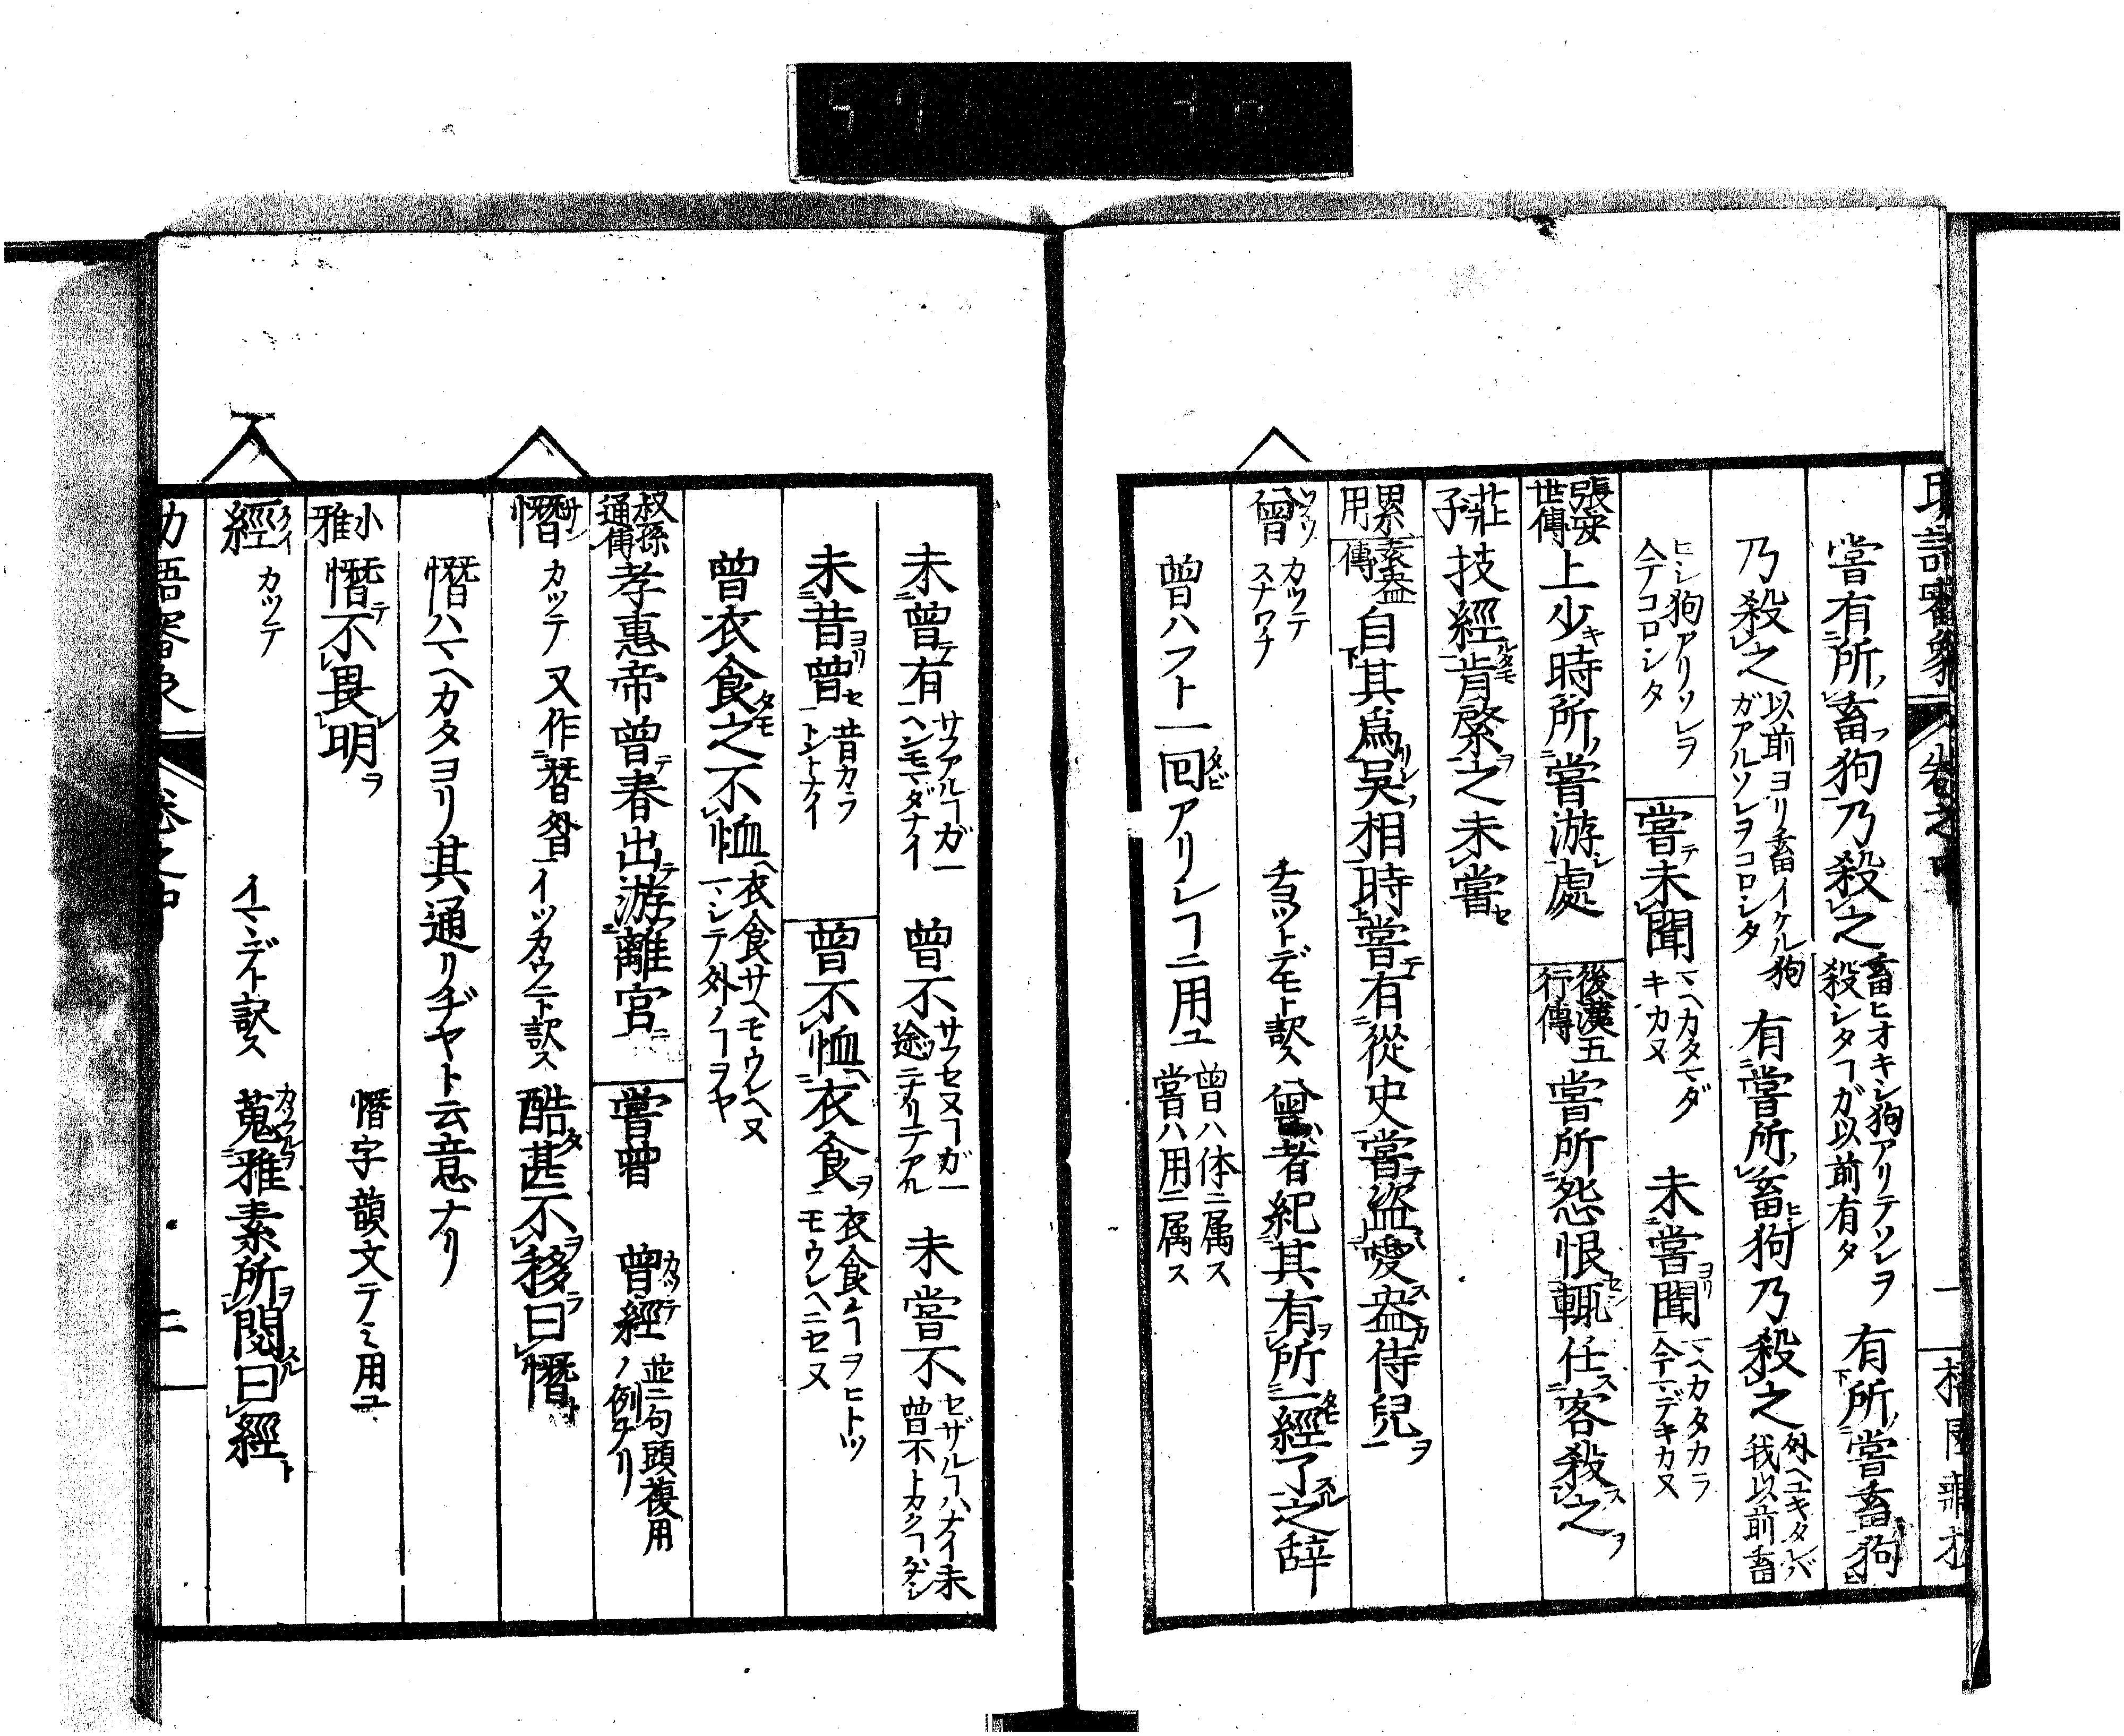 助語審象 卷之中 一
嘗有所畜狗乃殺之 畜ヒオキシ狗アリテソレヲ殺シタ𬼀ガ以前有タ 有所嘗畜狗
乃殺之 以前ヨリ畜イケル狗ガアルソレヲコロシタ 有嘗所畜狗乃殺之 外ヘユキタレバ我以前畜
ヒシ狗アリソレヲ今コロシタ 嘗未聞 マヘカタマダキカヌ 未嘗聞 マヘカタカラ今マデキカヌ
張安世傳 上少時所嘗游處 後漢五行傳 嘗所怨恨輒任客殺之
莊子 技經肯綮之未嘗
累用 袁盎傳 自其爲吳相時嘗有從史嘗盜愛盎侍兒
曾 カツテ スナワチ チヨツトデモト訳ス 曾者紀其有所一經了之辞
曾ハフト一回アリシヿニ用ユ 曾ハ体ニ属ス 嘗ハ用ニ属ス
未曾有 サフアルヿガ一ヘンモマダナイ 曾不 サフセヌヿガ一途ニナリテアル 未嘗不 セザルヿハナイ未曾不トカクヿナシ
未昔曾 昔カラトントナイ 曾不恤衣食 衣食ノヿヲヒトツモウレヘニセヌ
曾衣食之不恤 衣食サヘモウレヘヌマシテ外ノヿヲヤ
叔孫通傳 孝惠帝曾春出游離宮 嘗曾 曾經 並ニ句頭複用ノ例ナリ
憯 サン カツテ 又作朁 イツカウニト訳ス 酷甚不移曰憯
憯ハマヘカタヨリ其通リヂヤト云意ナリ
小雅 憯不畏明 憯字韻文ニノミ用ユ
經 ケイ カツテ イマヽデト訳ス 蒐雅素所閱曰經
助語審象 卷之中 二